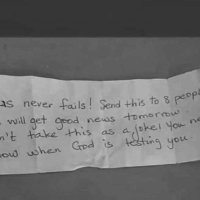 us never fails! Send this to 8 people
will get good news tomorrow.
n't take this as a joke! You ne
ow when God is testing you.